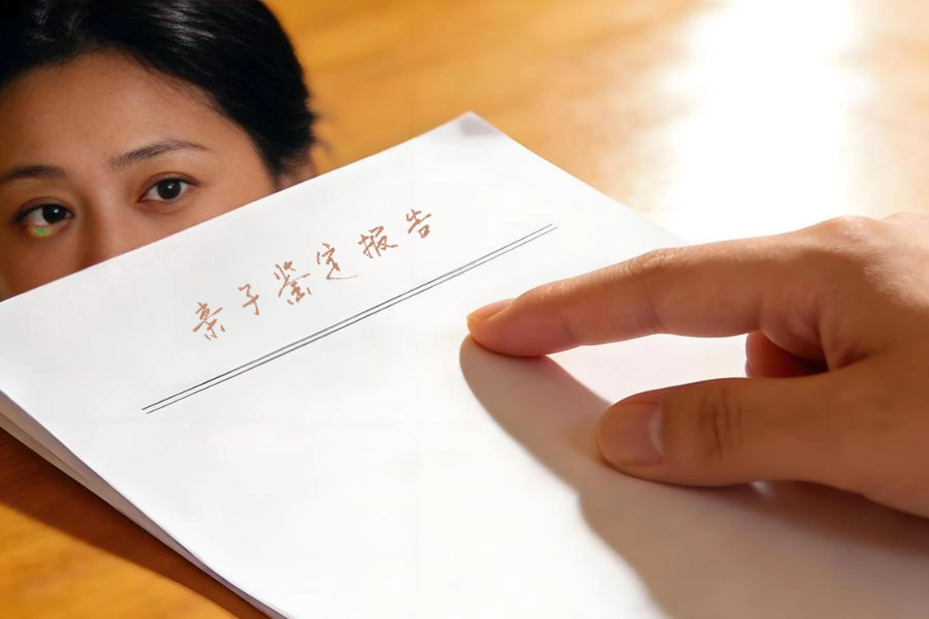 亲子鉴定报告